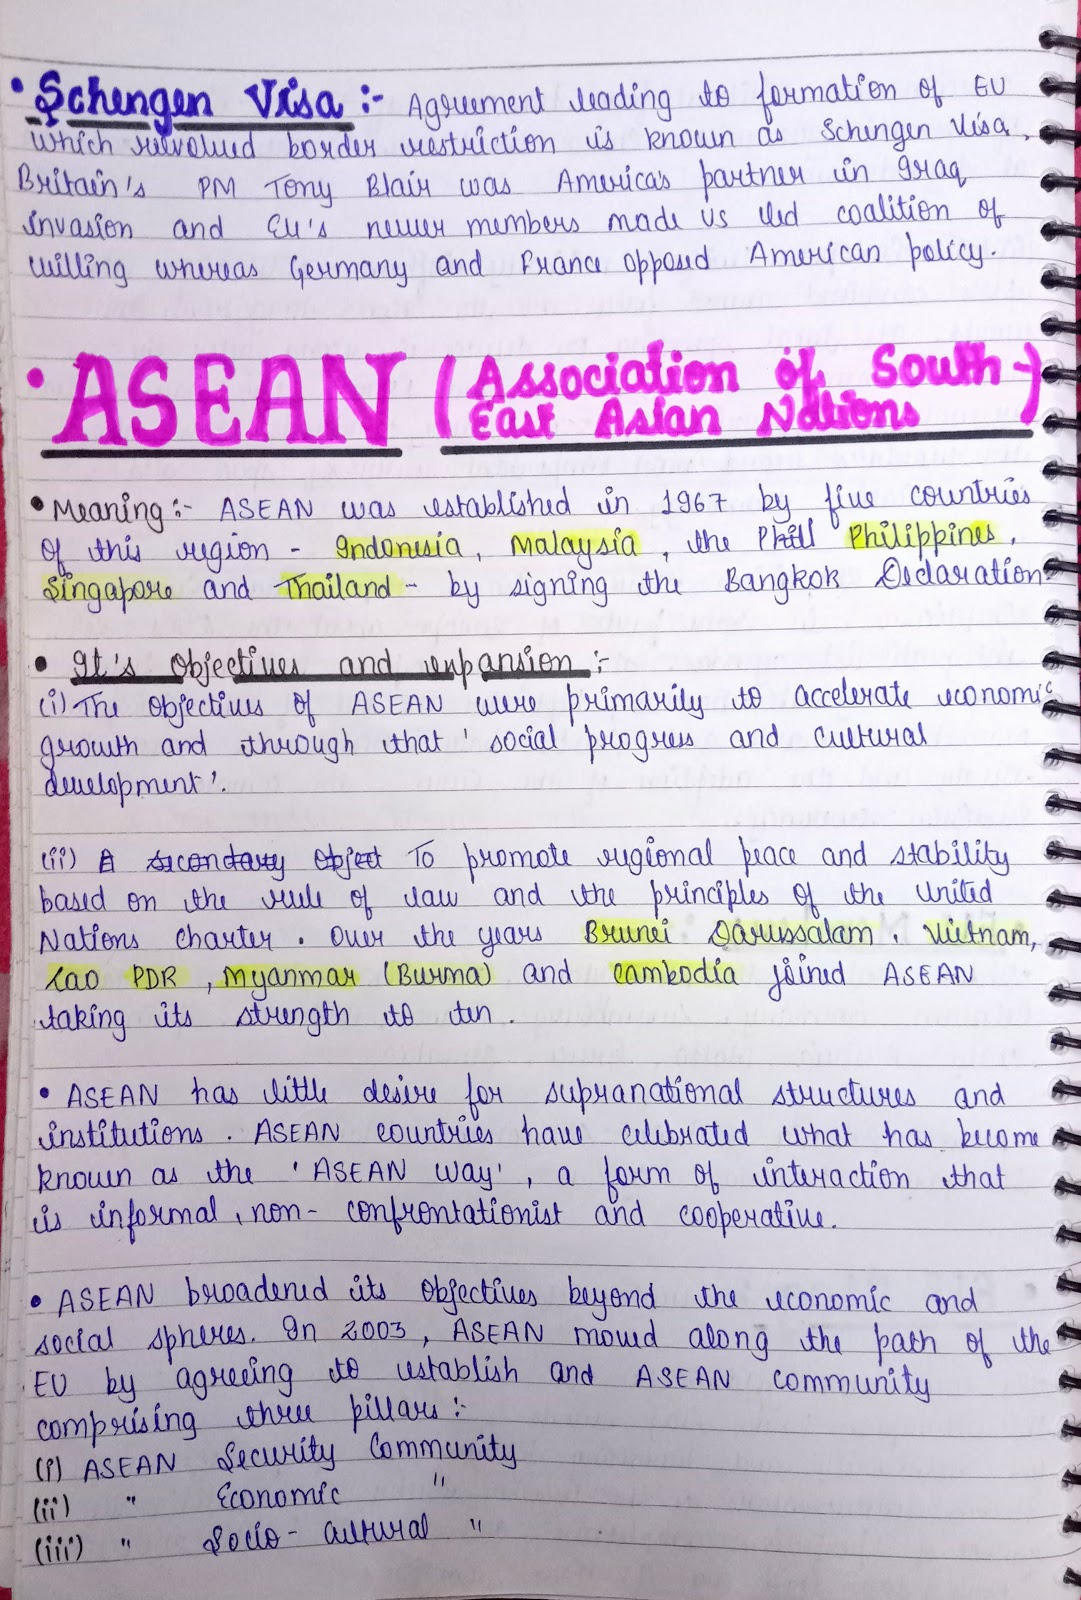 • Schengen Visa :- Agreement leading to formation of EU
which revolved border restriction is known as Schengen Visa.
Britain's PM Tony Blair was America's partner in Iraq
invasion and EU's newer members made US led coalition of
willing whereas Germany and France opposed American policy.
• ASEAN (Association of South-
East Asian Nations)
• Meaning :- ASEAN was established in 1967 by five countries
of this region - Indonesia, Malaysia, the Phill Philippines,
Singapore and Thailand - by signing the Bangkok Declaration.
• It's objectives and expansion :-
(i) The objectives of ASEAN were primarily to accelerate economic
growth and through that 'social progress and cultural
development'.
(ii) A secondary object To promote regional peace and stability
based on the rule of law and the principles of the United
Nations Charter. Over the years Brunei Darussalam, Vietnam,
Lao PDR, Myanmar (Burma) and Cambodia joined ASEAN
taking its strength to ten.
• ASEAN has little desire for supranational structures and
institutions. ASEAN countries have celebrated what has become
known as the 'ASEAN Way', a form of interaction that
is informal, non-confrontationist and cooperative.
• ASEAN broadened its objectives beyond the economic and
social spheres. In 2003, ASEAN moved along the path of the
EU by agreeing to establish and ASEAN community
comprising three pillars :-
(i) ASEAN Security Community
(ii) " Economic "
(iii) " Socio-Cultural "